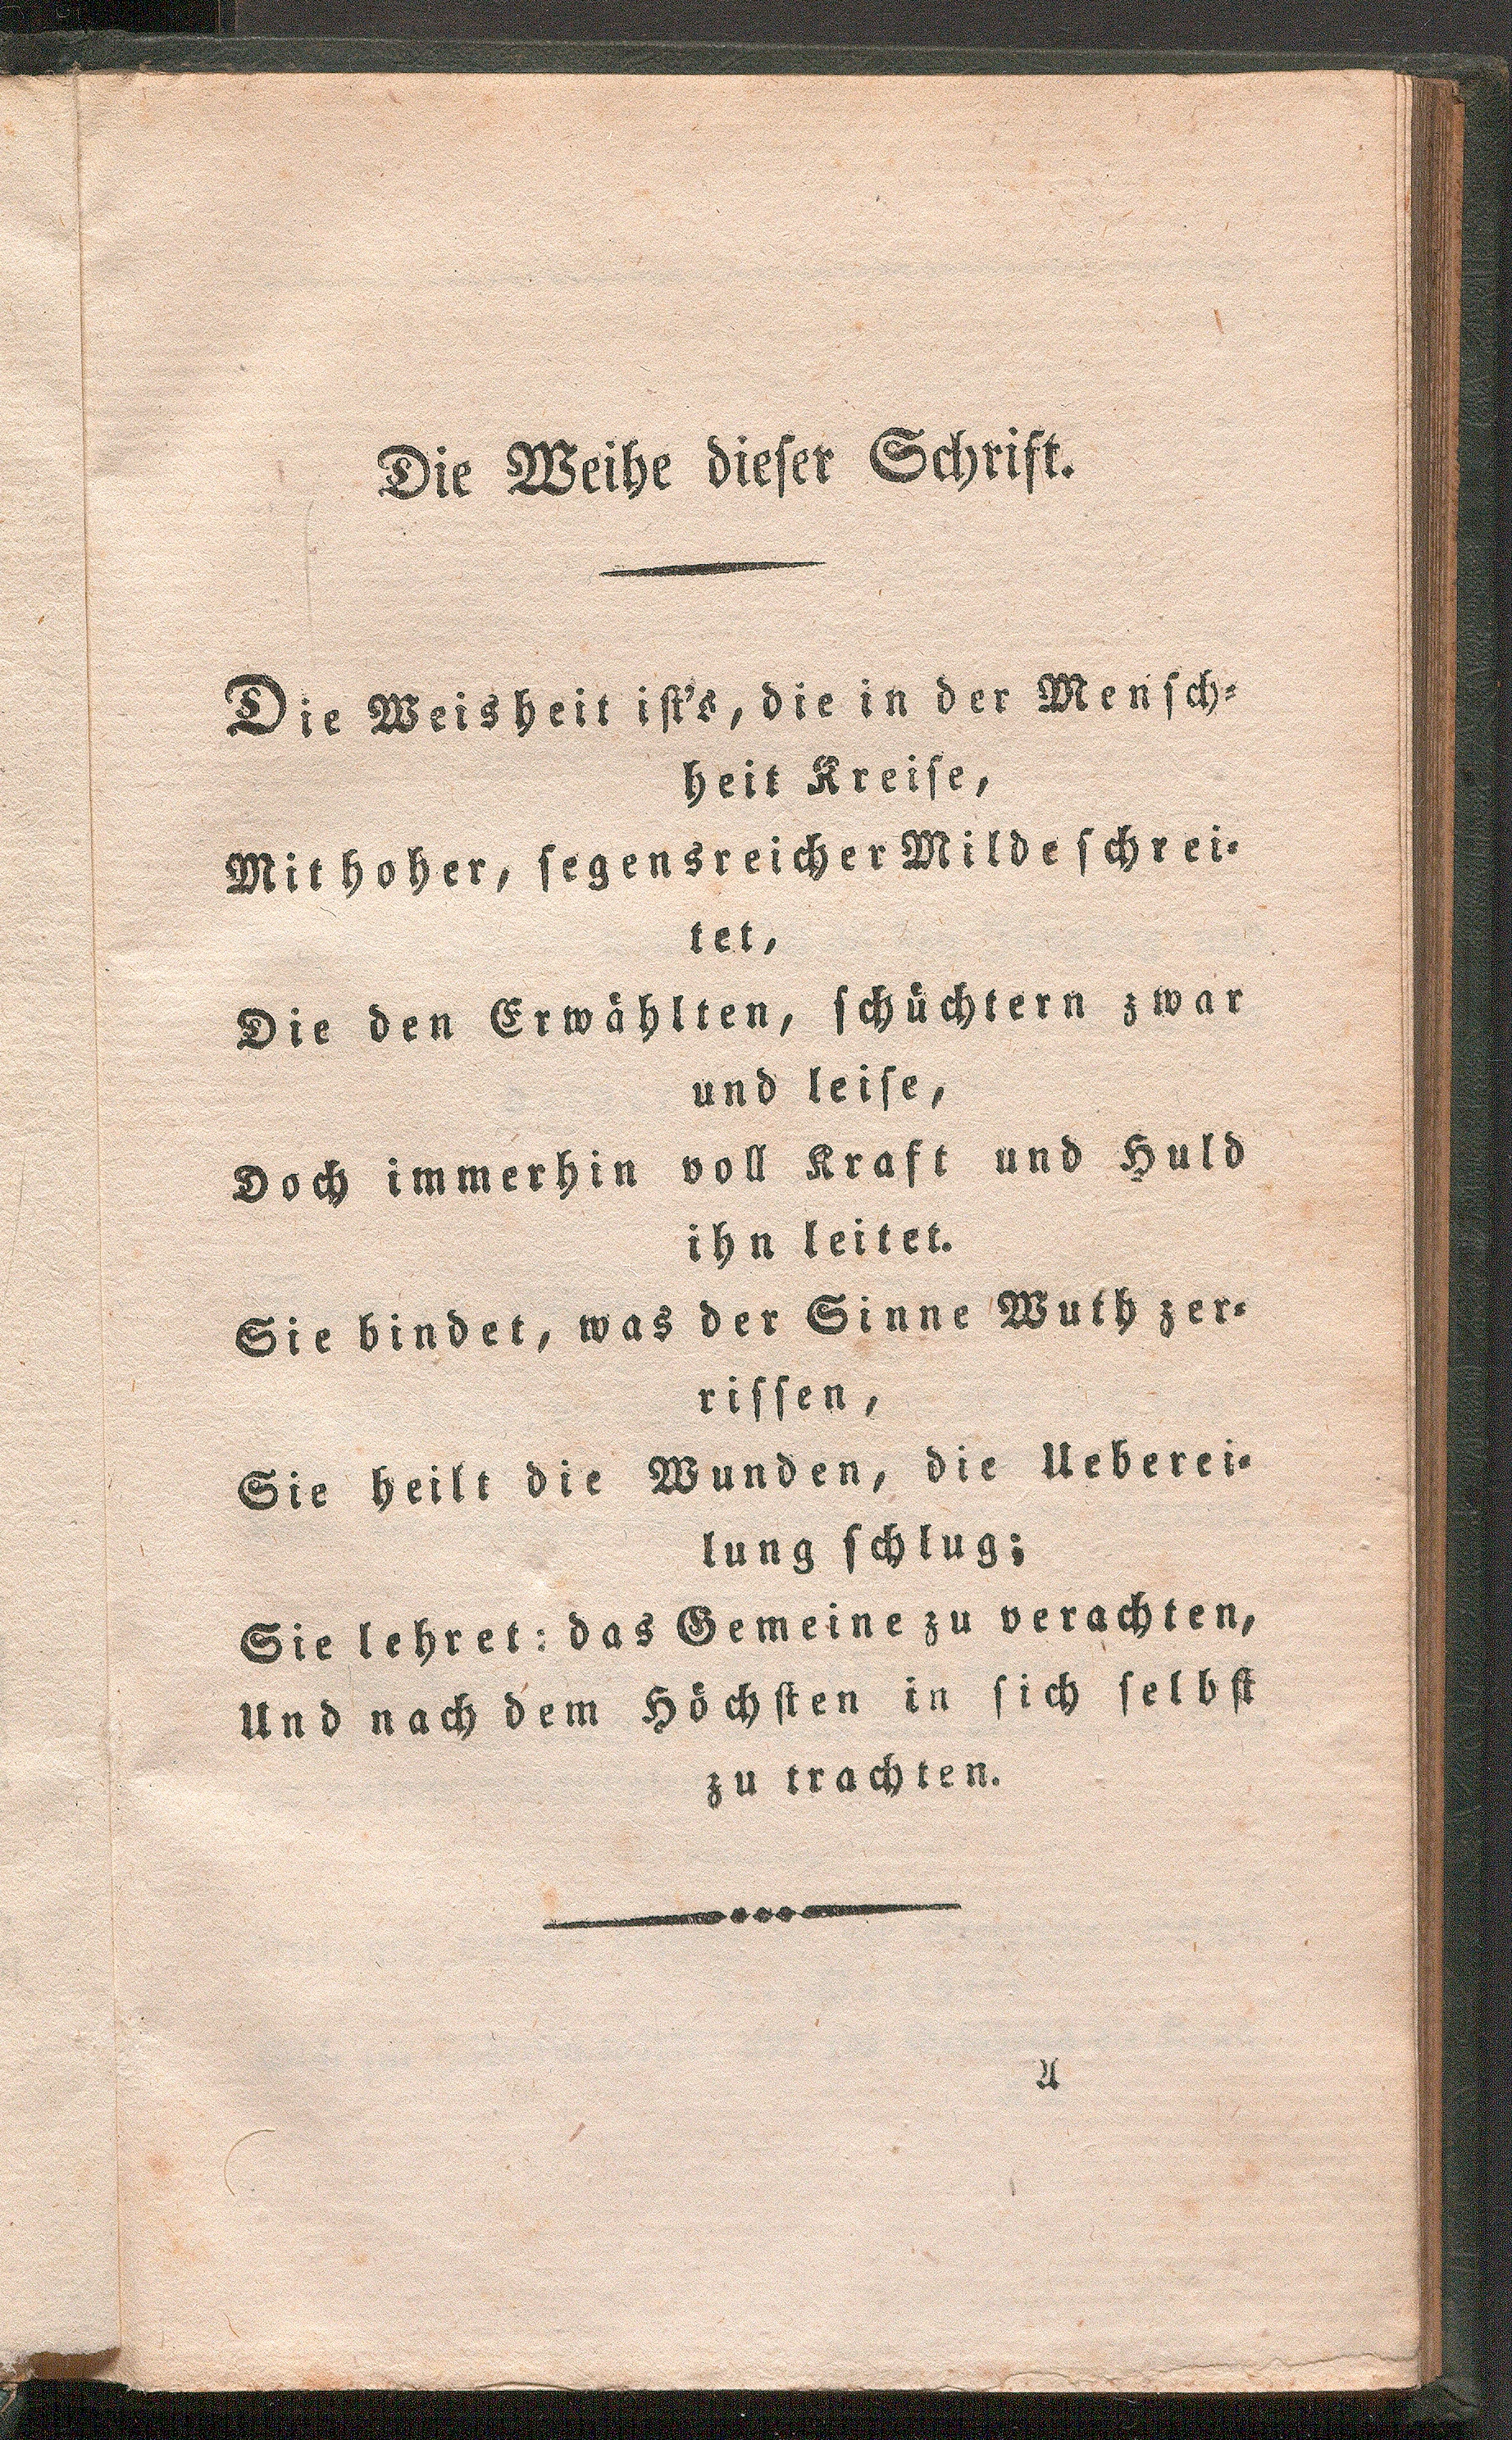 Die Weihe dieser Schrift.
Die Weisheit ist's, die in der Mensch-
heit Kreise,
Mit hoher, segensreicher Milde schrei-
tet,
Die den Erwählten, schüchtern zwar
und leise,
Doch immerhin voll Kraft und Huld
ihn leitet.
Sie bindet, was der Sinne Wuth zer-
rissen,
Sie heilt die Wunden, die Ueberei-
lung schlug;
Sie lehret: das Gemeine zu verachten,
Und nach dem Höchsten in sich selbst
zu trachten.
A